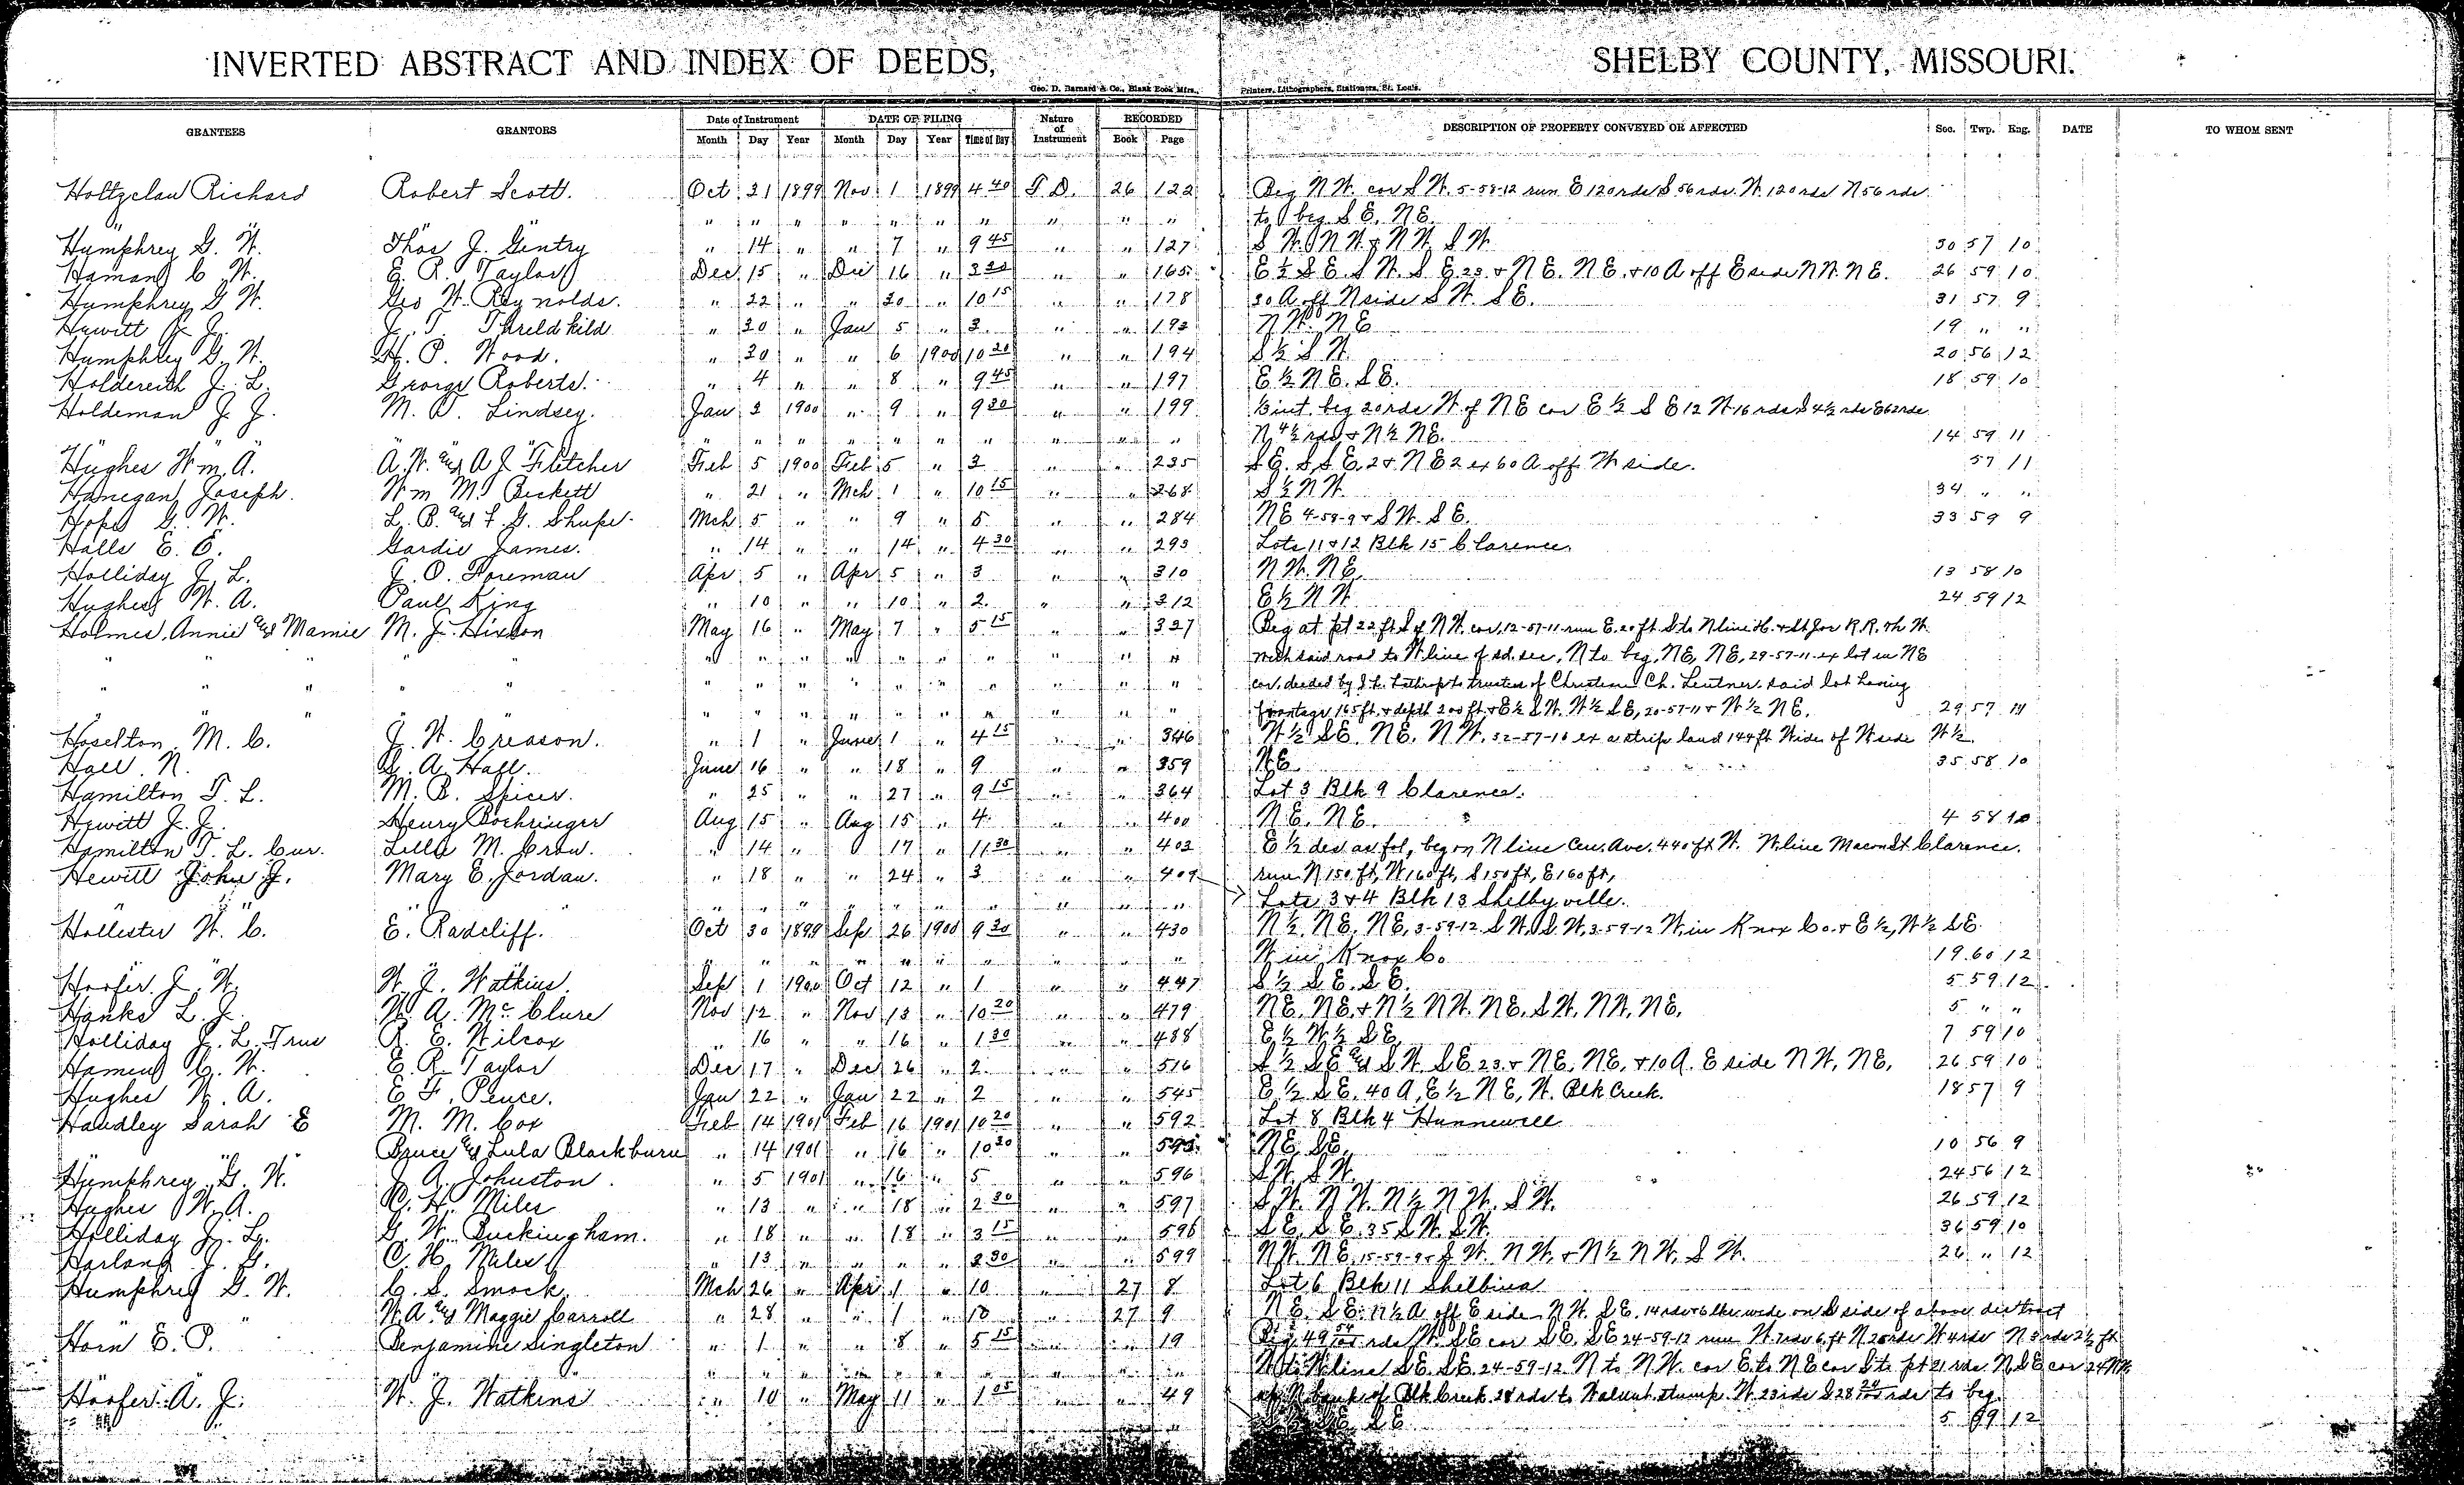 INVERTED ABSTRACT AND INDEX OF DEEDS, SHELBY COUNTY, MISSOURI.
Geo. D. Barnard & Co., Blank Book Mfrs., Printers, Lithographers, Stationers, St. Louis.
GRANTEES GRANTORS Date of Instrument Month Day Year DATE OF FILING Month Day Year Time of Day Nature of Instrument RECORDED Book Page DESCRIPTION OF PROPERTY CONVEYED OR AFFECTED Sec. Twp. Rng. DATE TO WHOM SENT
Holtzclaw Richard Robert Scott. Oct 21 1899 Nov 1 1899 4 40 T D. 26 122 Beg N W. cor S W. 5-58-12 run E 120 rds S 56 rds. W. 120 rds N 56 rds
" " " " " " " " " " " to beg S E. N E.
Humphrey G. W. Thos J. Gentry " 14 " " 7 " 9 45 " " 127 S W. N W. & N W. S W. 30 57 10
Haman C. W. E. R. Taylor Dec 15 " Dec 16 " 3 20 " " 165 E ½ S E. S W. S E. 23 & N E. N E. & 10 A off E side N W. N E. 26 59 10
Humphrey G. W. Geo W. Reynolds. " 22 " " 30 " 10 15 " " 178 30 A off N side S W. S E. 31 57 9
Hewitt J. J. J. T. Threldkild " 30 " Jan 5 " 3 " " 193 N W. N E 19 " "
Humphrey G. W. H. P. Wood. " 30 " " 6 1900 10 20 " " 194 S ½ S W. 20 56 12
Holdereith J. L. George Roberts. " 4 " " 8 " 9 45 " " 197 E ½ N E. S E. 18 59 10
Holdeman J. J. M. D. Lindsey. Jan 2 1900 " 9 " 9 30 " " 199 ⅓ int. beg 20 rds W. of N E cor E ½ S E 12 W. 16 rds S 4½ rds E 62 rds
" " " " " " " " " " N 4½ rds & N ½ N E. 14 59 11
Hughes Wm. A. A. W. & A J Fletcher Feb 5 1900 Feb 5 " 3 " " 235 S E. S S E. 2 & N E 2 ex 60 A off W side. 57 11
Hanegan Joseph. Wm M. Beckett " 21 " Mch 1 " 10 15 " " 268 S ½ N W. 34 " "
Hope G. W. L. B. & F. G. Shupe. Mch 5 " " 9 " 5 " " 284 N E 4-58-9 & S W. S E. 33 59 9
Halls E. E. Gardie James. " 14 " " 14 " 4 30 " " 293 Lots 11 & 12 Blk 15 Clarence.
Holliday J. L. J. O. Foreman Apr 5 " Apr 5 " 3 " " 310 N W. N E. 13 58 10
Hughes W. A. Paul King " 10 " " 10 " 2. " " 312 E ½ N W. 24 59 12
Holmes, Annie & Mamie M. J. Hixson May 16 " May 7 " 5 15 " " 327 Beg at pt 22 ft S of N W. cor, 12-57-11 run E. 20 ft S to N line H. & St Joe R. R. th W.
" " " " " " " " " " " with said road to W line of sd. sec, N to beg, N E, N E, 29-57-11 ex lot in N E
" " " " " " " " " " " cor. deeded by S. L. Lathrop to trustees of Christian Ch. Lentner. said lot having
" " " " " " " " " " frontage 165 ft. & depth 200 ft & E ½ S W. W ½ S E, 20-57-11 & W ½ N E. 29 57 11
Hoselton M. C. J. W. Creason. " 1 " June 1 " 4 15 " " 346 W ½ S E. N E. N W. 32-57-10 ex a strip land 144 ft Wide of W side W ½
Hall. N. G. A. Hall. June 16 " " 18 " 9 " " 359 N E 35 58 10
Hamilton T. L. M. B. Spicer. " 25 " " 27 " 9 15 " " 364 Lot 3 Blk 9 Clarence.
Hewitt J. J. Henry Boehringer Aug 15 " Aug 15 " 4 " " 400 N E. N E. 4 58 10
Hamilton T. L. Cur. Lilly M. Crow. " 14 " 17 " 11 30 " " 403 E ½ des as fol, beg on N line Cen. Ave. 440 ft W. W line Macon St Clarence.
Hewitt John J. Mary E. Jordan. " 18 " " 24 " 3 " " 409 run N 150 ft, W 160 ft, S 150 ft, E 160 ft,
" " " " " " " " " Lots 3 & 4 Blk 13 Shelbyville.
Hollister W. C. E. Radcliff. Oct 30 1899 Sep 26 1900 9 30 " " 430 N ½, N E, N E, 3-59-12 S W. S. W, 3-59-12 W, in Knox Co. & E ½, W ½ S E.
" " " " " " " " " W in Knox Co. 19 60 12
Hoofer J. W. W. J. Watkins. Sep 1 1900 Oct 12 " 1 " " 447 S ½ S E. S E. 5 59 12
Hanks L. J. W. A. McClure Nov 12 " Nov 13 " 10 20 " " 479 N E. N E. & N ½ N W. N E. S W. N W. N E. 5 " "
Holliday J. L. Trus R. E. Wilcox " 16 " " 16 " 1 30 " " 488 E ½ W ½ S E. 7 59 10
Haman C. W. E. R. Taylor Dec 17 " Dec 26 " 2. " " 516 S ½ S E & S W. S E 23 & N E, N E, & 10 A. E side N W, N E. 26 59 10
Hughes W. A. E F. Pence. Jan 22 " Jan 22 " 2 " " 545 E ½ S E. 40 A, E ½ N E, W. Blk Creek. 18 57 9
Handley Sarah E M. M. Cox Feb 14 1901 Feb 16 1901 10 20 " " 592 Lot 8 Blk 4 Hunnewell
Bruce & Lula Blackburn " 14 1901 " 16 " 10 30 " " N E. S E. 10 56 9
Humphrey G. W. J. A. Johnston. " 5 1901 " 16 " 5 " " 596 S W. S W. 24 56 12
Hughes W. A. C. H. Miles " 13 " " 18 " 2 30 " " 597 S W. N W. N ½ N W. S W. 26 59 12
Holliday J. L. G. W. Buckingham. " 18 " " 18 " 3 15 " " 598 S E. S E. 35 S W. S W. 36 59 10
Harland J. G. C. H. Miles " 13 " " " " 2 30 " " 599 N W. N E. 15-59-9 & S W. N W. & N ½ N W. S W. 26 " 12
Humphrey G. W. C. S. Smock. Mch 26 " Apr 1 " 10 " 27 8 Lot 6 Blk 11 Shelbina
" " W. A. & Maggie Carroll " 28 " " 1 " 10 27 9 N E. S E. 17½ A off E side N W. S E. 14 rds & 6 lks wide on S side of above distract
Horn E. P. Benjamine Singleton " 1 " " 8 " 5 15 " " 19 Beg. 49 rds W. S E cor S E. S E 24-59-12 run W. 7 rds 6 ft N 25 rds W 4 rds N 3 rds 2½ ft
" " " " " " " " " W to W line S E. S E. 24-59-12. N to N W. cor E. to N E cor S to pt 21 rds. N. S E cor 24
Hoofer A. J. W. J. Watkins " 10 " May 11 " 1 05 " " 49 on N bank of Blk Creek 28 rds to Walnut stump. W. 23 rds S 28 rds to beg.
S E 5 59 12